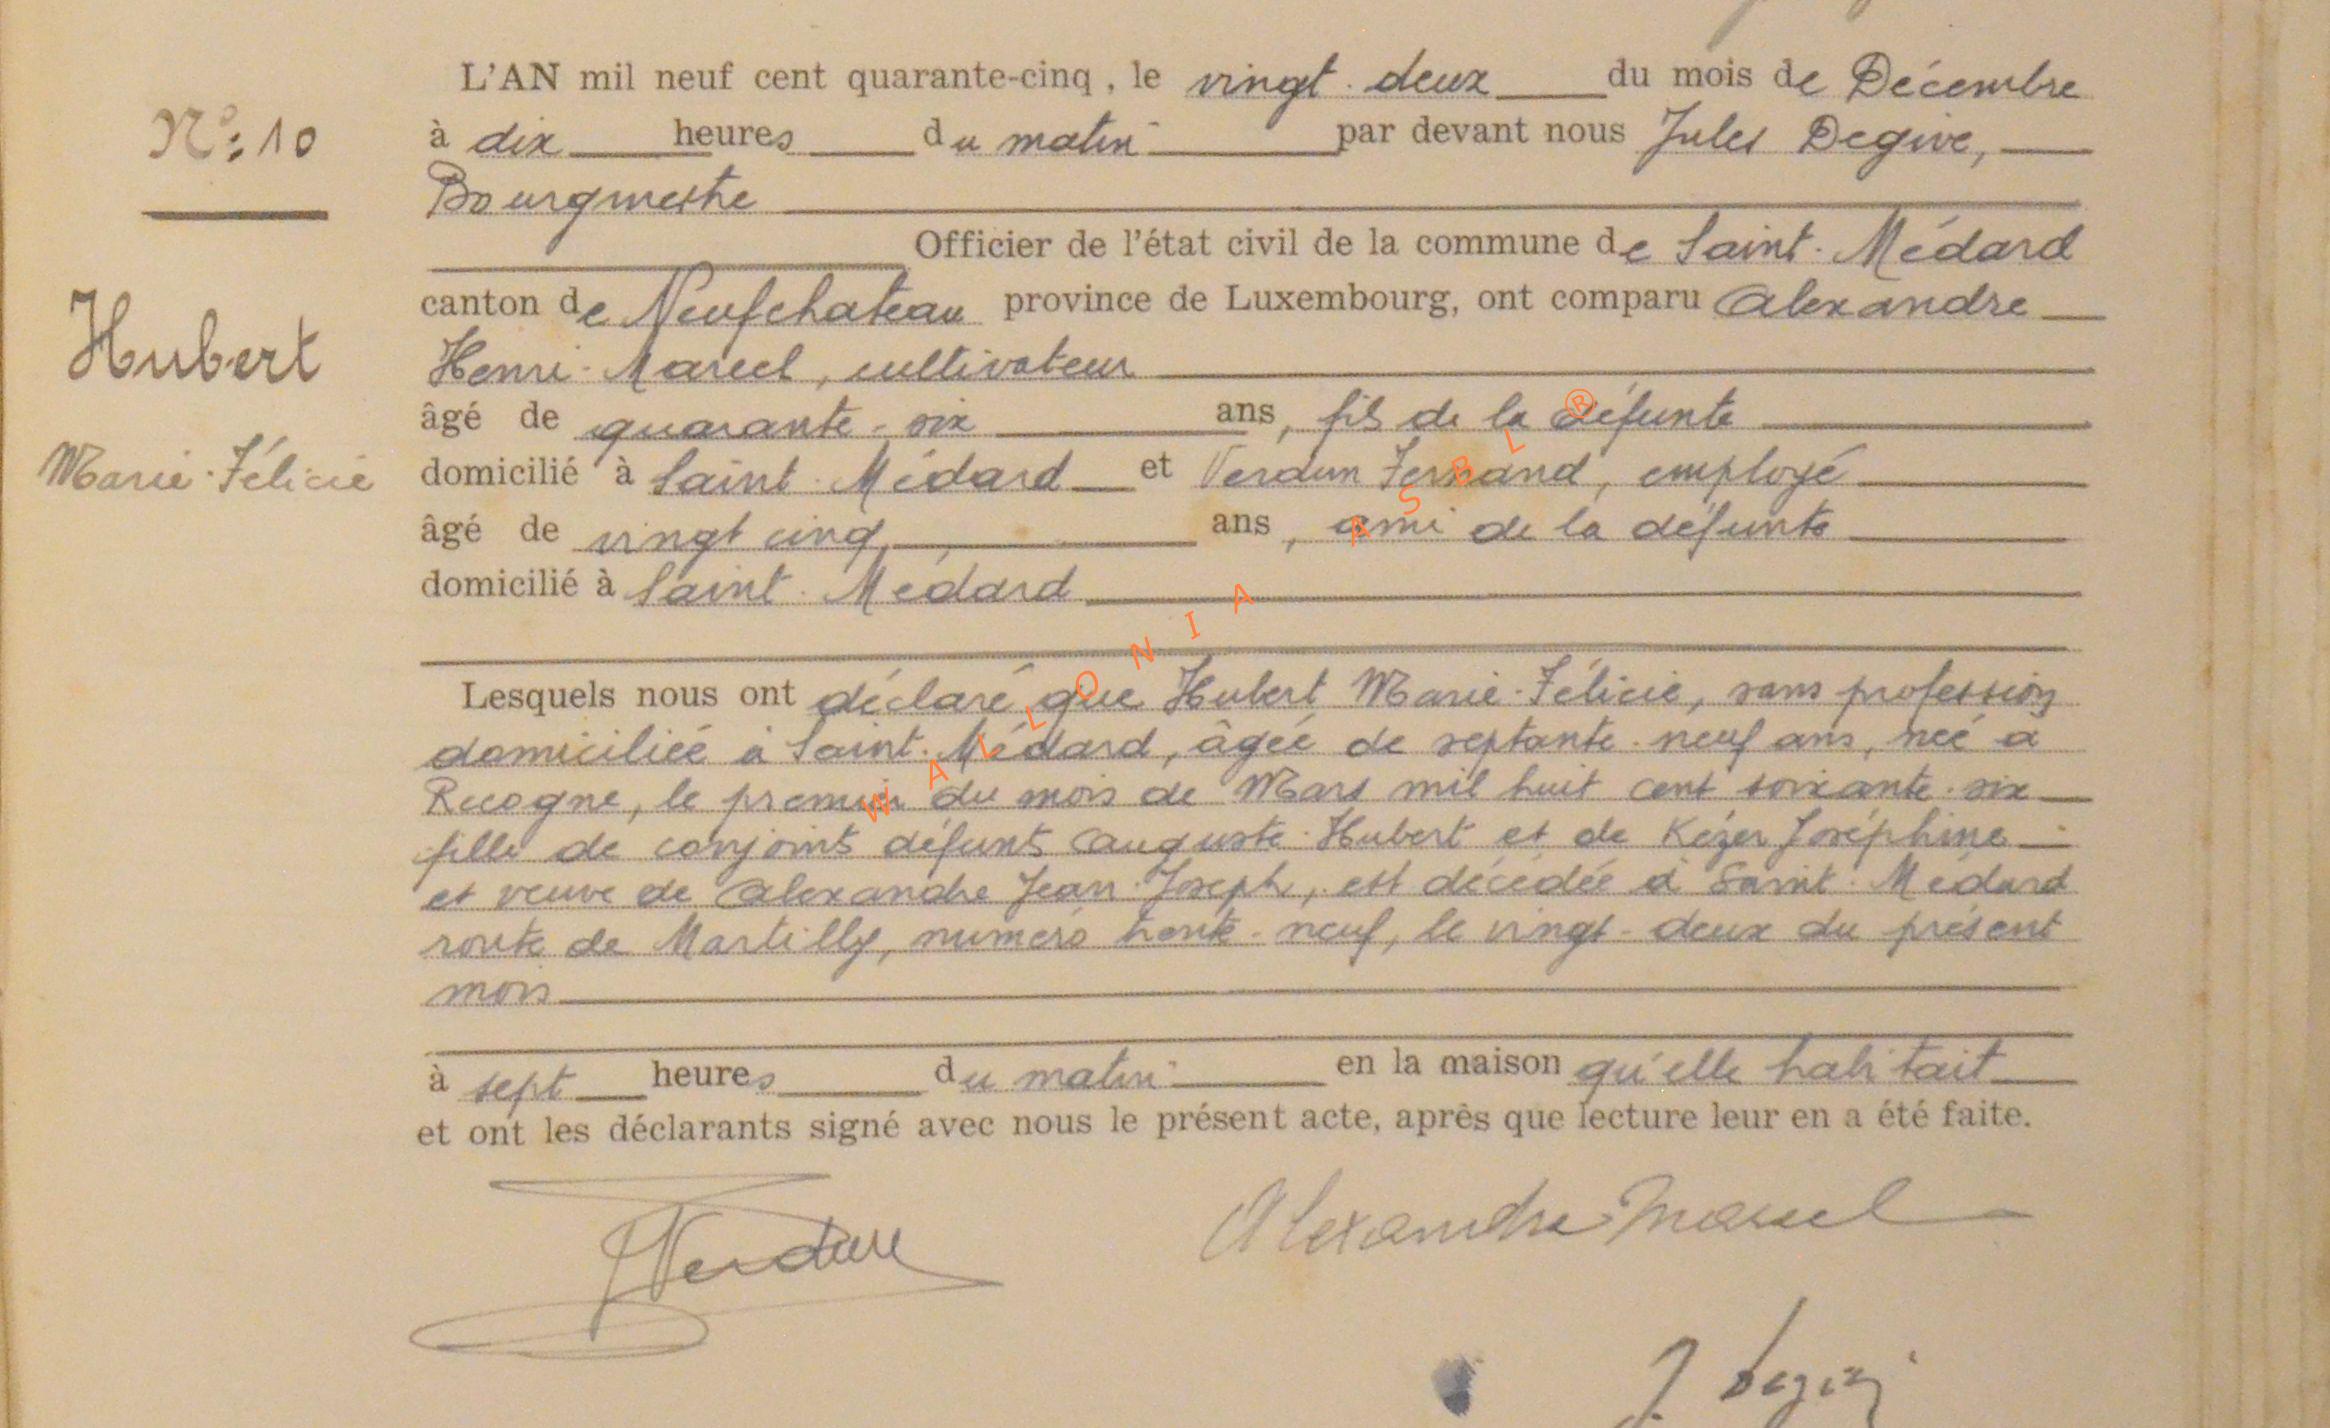 L'AN mil neuf cent quarante-cinq, le vingt-deux du mois de Décembre
N°: 10
à dix heures du matin par devant nous Jules Degive,
Bourgmestre
Officier de l'état civil de la commune de Saint-Médard
canton de Neufchateau province de Luxembourg, ont comparu Alexandre
Hubert
Henri-Marcel, cultivateur
âgé de quarante-six ans, fils de la défunte
Marie-Félicie
domicilié à Saint-Médard et Verdun Fernand, employé
âgé de vingt cinq ans, ami de la défunte
domicilié à Saint-Médard
Lesquels nous ont déclaré que Hubert Marie-Félicie, sans profession
domiciliée à Saint-Médard, âgée de septante-neuf ans, née à
Recogne, le premier du mois de Mars mil huit cent soixante-six
fille de conjoints défunts Auguste Hubert et de Kézer Joséphine
et veuve de Alexandre Jean-Joseph, est décédée à Saint-Médard
route de Martilly, numéro trente-neuf, le vingt-deux du présent
mois
à sept heures du matin en la maison qu'elle habitait
et ont les déclarants signé avec nous le présent acte, après que lecture leur en a été faite.
Alexandre Marcel
WALLONIA ASBL ®